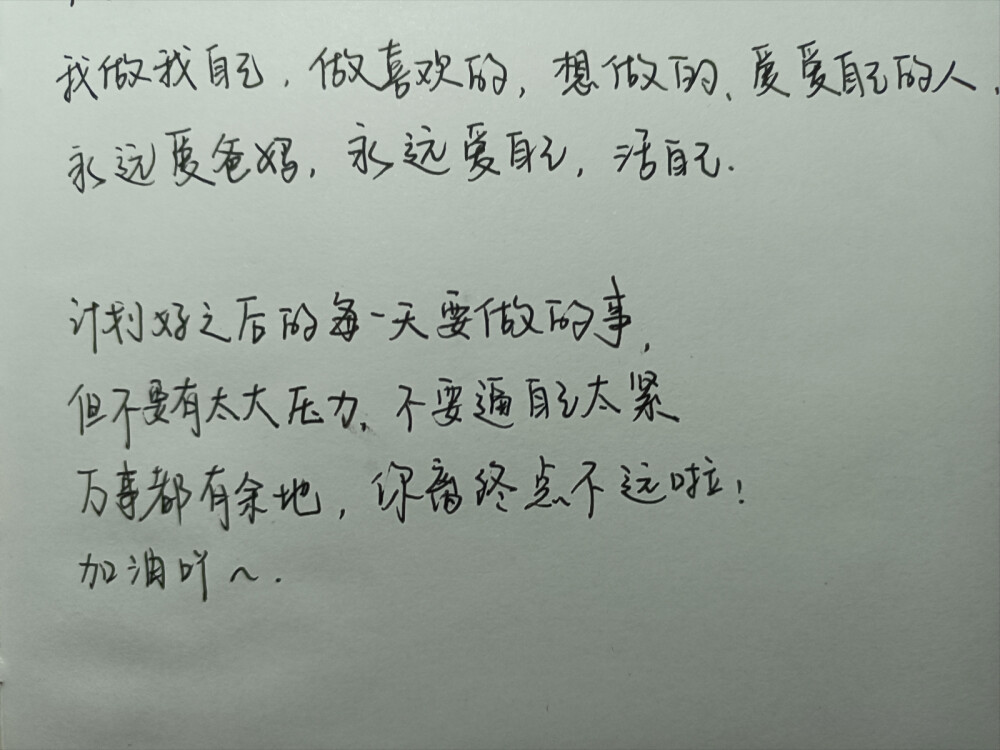 我做我自己,做喜欢的,想做的、爱爱自己的人,
永远爱爸妈,永远爱自己,活自己.
计划好之后的每一天要做的事,
但不要有太大压力,不要逼自己太紧
万事都有余地,你离终点不远啦!
加油吖~.